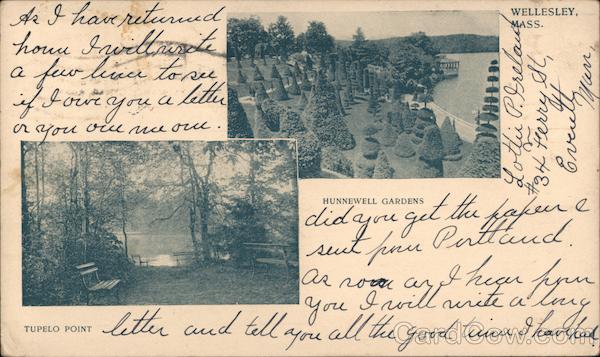 As I have returned
home I will write
a few lines to see
if I owe you a letter
or you owe me one.
WELLESLEY,
MASS.
Lottie P. Ireland
#34 Ferry St,
Everett
Mass.
HUNNEWELL GARDENS
did you get the paper I
sent from Portland.
As soon as I hear from
you I will write a long
TUPELO POINT
letter and tell you all the good times I have had.
CardCow.com